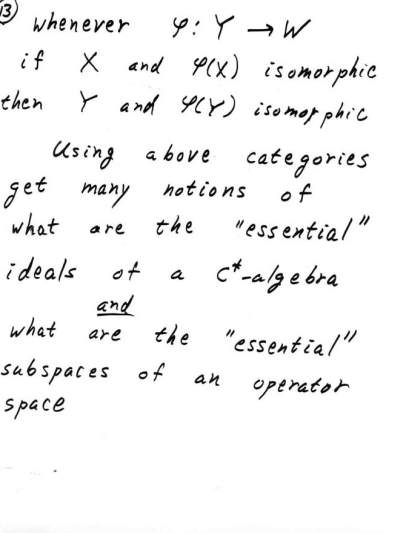 13
whenever φ: Y → W
if X and φ(X) isomorphic
then Y and φ(Y) isomorphic
Using above categories
get many notions of
what are the "essential"
ideals of a C*-algebra
and
what are the "essential"
subspaces of an operator
space